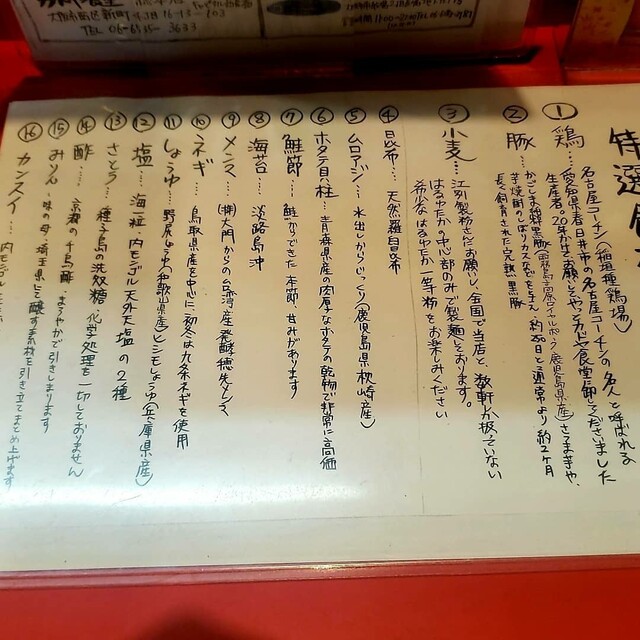 カドヤ食堂
大阪市西区新町4丁目16-13-103
TEL 06-6535-3633
特選
① 鶏… 名古屋コーチン(稲垣種鶏場)
愛知県春日井市の名古屋コーチンの名人と呼ばれる
生産者。20年かけてお願いしやっとカドヤ食堂に卸してくださいました
② 豚… かごしま純粋黒豚(霧島高原ロイヤルポーク・鹿児島県産)さつま芋や、
芋焼酎のしぼりカスなどを与え、約260日と通常より約2ヶ月
長く飼育された完熟黒豚
③ 小麦… 江別製粉さんにお願いし、全国で当店と、数軒しか扱っていない
はるゆたかの中心部のみで製麺しております。
希少なはるゆたか一等粉をお楽しみください
④ 昆布… 天然羅臼昆布
⑤ ムロアジ… 水出しからじっくり(鹿児島県枕崎産)
⑥ ホタテ貝柱… 青森県産の肉厚なホタテの乾物で非常に高価
⑦ 鮭節… 鮭からできた本節・甘みがあります
⑧ 海苔… 淡路島沖
⑨ メンマ… (株)大門からの台湾産発酵穂先メンマ
⑩ ネギ… 鳥取県産を中心に、初冬は九条ネギを使用
⑪ しょうゆ… 野尻しょうゆ(和歌山県産)ヒシモしょうゆ(兵庫県産)
⑫ 塩… 海一粒 内モンゴル天外天塩の2種
⑬ さとう… 種子島の洗双糖・化学処理を一切しておりません
⑭ 酢… 京都の千鳥酢・まろやかで引きしまります
⑮ みりん・味の母・埼玉県にて醸す素材を引き立てまとめ上げます
⑯ カンスイ… 内モンゴル